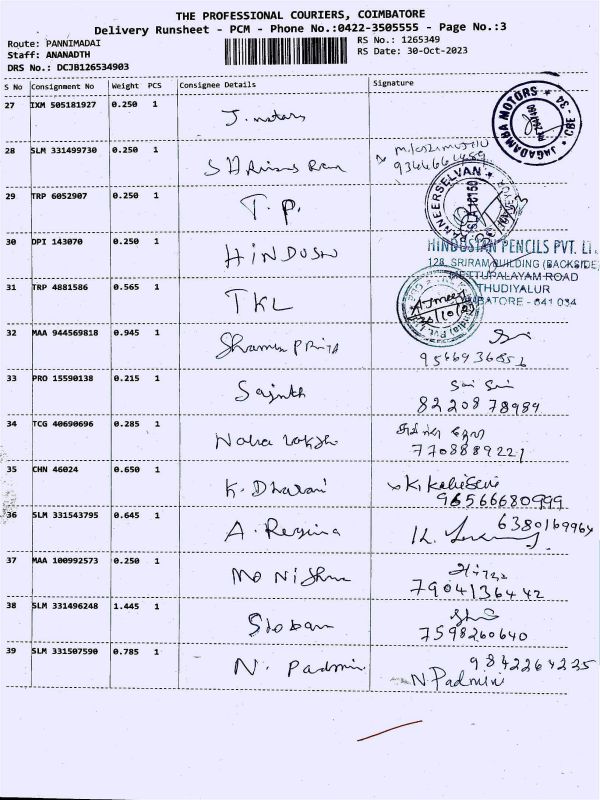 THE PROFESSIONAL COURIERS, COIMBATORE
Delivery Runsheet - PCM - Phone No.:0422-3505555 - Page No.:3
Route: PANNIMADAI
RS No.: 1265349
Staff: ANANADTH
RS Date: 30-Oct-2023
DRS No.: DCJB126534903
S No Consignment No Weight PCS Consignee Details Signature
27 IXM 505181927 0.250 1 J. motors
JAGADAMBA MOTORS * CBE - 34 *
28 SLM 331499730 0.250 1
29 TRP 6052907 0.250 1 T. P.
30 DPI 143070 0.250 1 HINDUSN
HINDUSTAN PENCILS PVT. LT
128, SRIRAM BUILDING (BACKSIDE)
METTUPALAYAM ROAD
THUDIYALUR
COIMBATORE - 641 034
31 TRP 4881586 0.565 1 TKL
32 MAA 944569818 0.945 1
9566936852
33 PRO 15590138 0.215 1 Sajnth
8220878989
34 TCG 40690696 0.285 1
7708889221
35 CHN 46024 0.650 1 K. Dharani
96566680999
36 SLM 331543795 0.645 1 A. Regina
6380169964
37 MAA 100992573 0.250 1 Monisha
7904136442
38 SLM 331496248 1.445 1 Shoban
7598260640
39 SLM 331507590 0.785 1 N. Padmini
9842264235
N. Padmini